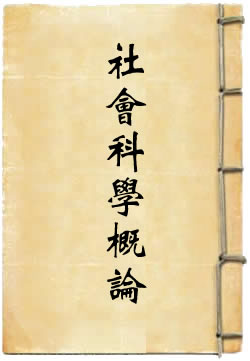 社會科學概論